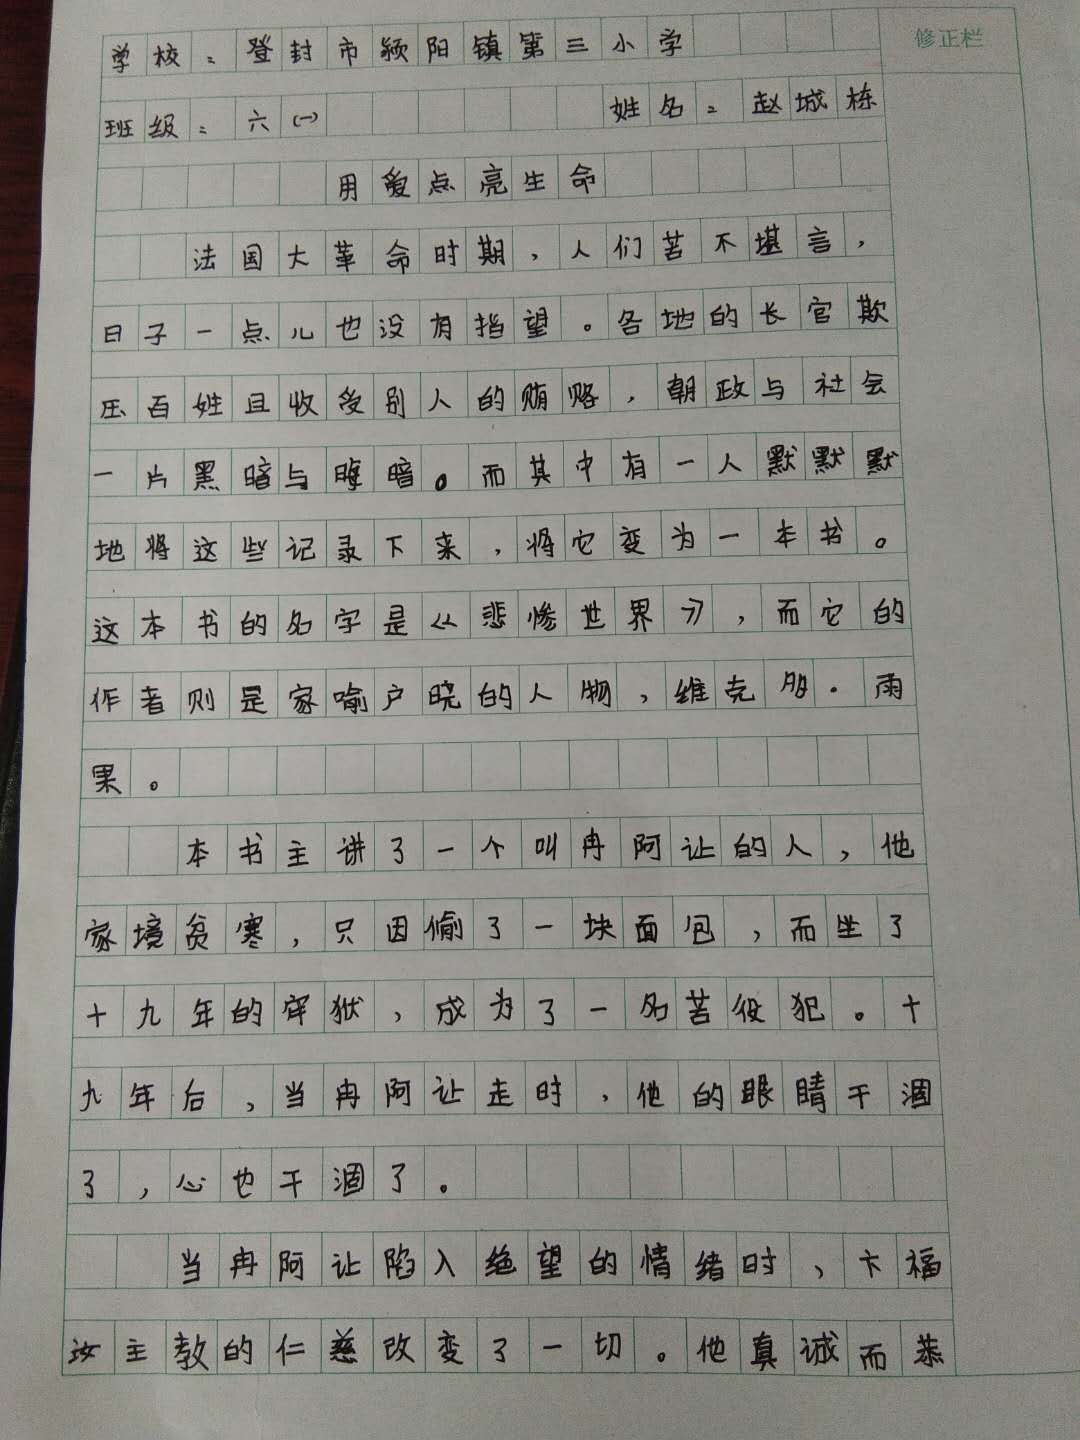 修正栏
学校：登封市颍阳镇第三小学
班级：六(一) 姓名：赵城栋
用爱点亮生命
法国大革命时期，人们苦不堪言，
日子一点儿也没有指望。各地的长官欺
压百姓且收受别人的贿赂，朝政与社会
一片黑暗与晦暗。而其中有一人默默默
地将这些记录下来，将它变为一本书。
这本书的名字是《悲惨世界》，而它的
作者则是家喻户晓的人物，维克多·雨
果。
本书主讲了一个叫冉阿让的人，他
家境贫寒，只因偷了一块面包，而坐了
十九年的牢狱，成为了一名苦役犯。十
九年后，当冉阿让走时，他的眼睛干涸
了，心也干涸了。
当冉阿让陷入绝望的情绪时，卞福
汝主教的仁慈改变了一切。他真诚而恭